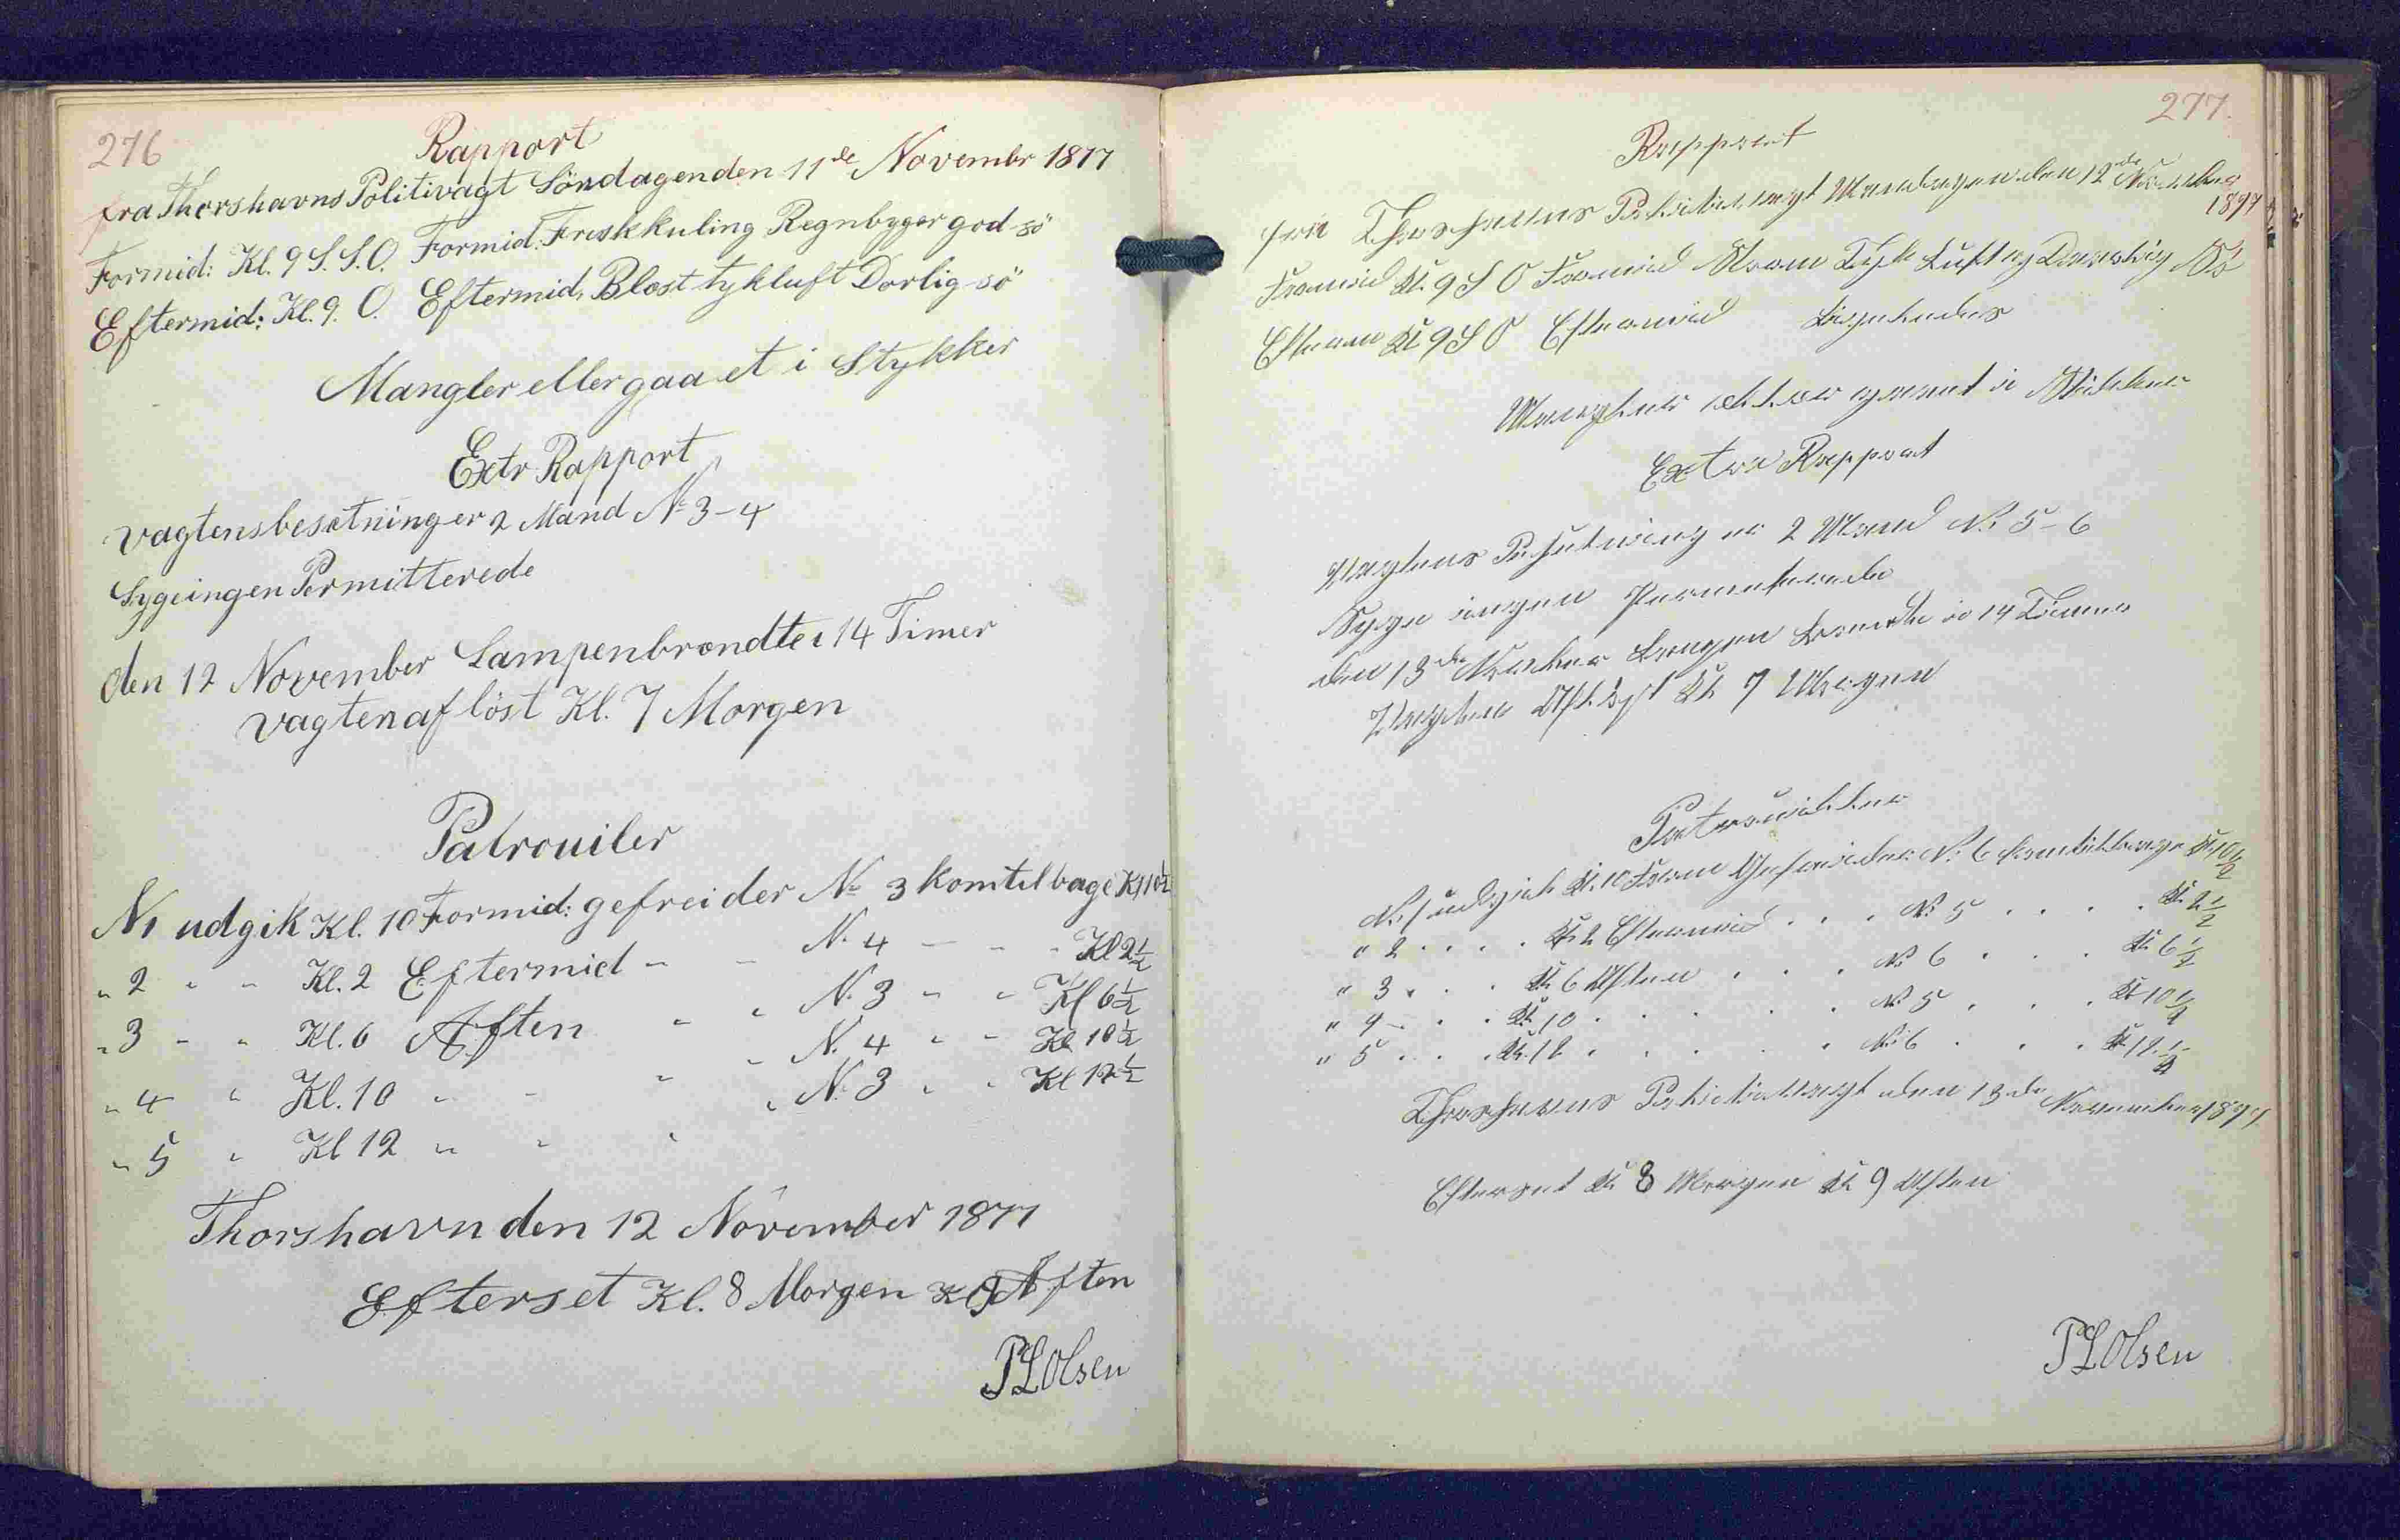 276
Rapport
fra Thorshavns Politivagt Söndagen den 11de Novembr 1877
Formid: Kl. 9 S.S.O. Formid: Friskkuling Regnbyger god sö
Eftermid: Kl. 9. O. Eftermid, Blæst tykluft Dorlig sö
Mangler eller gaaet i Stykker
Extr Rapport
Vagtens besætning er 2 Mand No 3-4
Syge ingen Permitterede
den 12 November Lampen brændte i 14 Timer
Vagten aflöst Kl. 7 Morgen
Patrouiler
N1 udgik Kl. 10 Formid: gefreider No 3 kom tilbage Kl 10½
" 2 " " Kl. 2 Eftermid " " N. 4 " " " Kl 2½
" 3 " " Kl. 6 Aften " " N. 3 " " Kl 6½
" 4 " Kl. 10 " " " " N. 4 " " Kl 10½
" 5 " Kl 12 " " " " N. 3 " " Kl 12½
Thorshavn den 12 November 1877
Efterset Kl. 8 Morgen Kl 9 Aften
PLOlsen
277.
Rapport
fra Thorshavns Politivagt Mandagen den 12de November
1877
Formid Kl. 9 S O Formid Storm Tyk Luft og Daarlig Sö
Efterm Kl 9 S O Eftermid Ligeledes
Mangler eller gaaet i Stykker
Extra Rapport
Vagtens Besætning er 2 Mand No 5-6
Syge ingen Permiterede
den 13de Lampen brændte i 14 Timer
Vagten Aflöst Kl 7 Morgen
Patrouiller
No 1 udgik Kl. 10 Form Gefreider No 6 kom tilbage Kl 10½
" 2 . . . . Kl. 2 Eftermid . . . No 5 . . . . Kl. 2½
" 3 . . . Kl 6 Aften . . . No 6 . . . Kl. 6½
" 4 . . . Kl. 10 . . . . . No 5 . . . Kl 10½
" 5 . . . Kl. 12 . . . . . No 6 . . . Kl 12½
Thorshavns Politivagt den 13de November 1877
Efterset Kl 8 Morgen Kl 9 Aften
PLOlsen